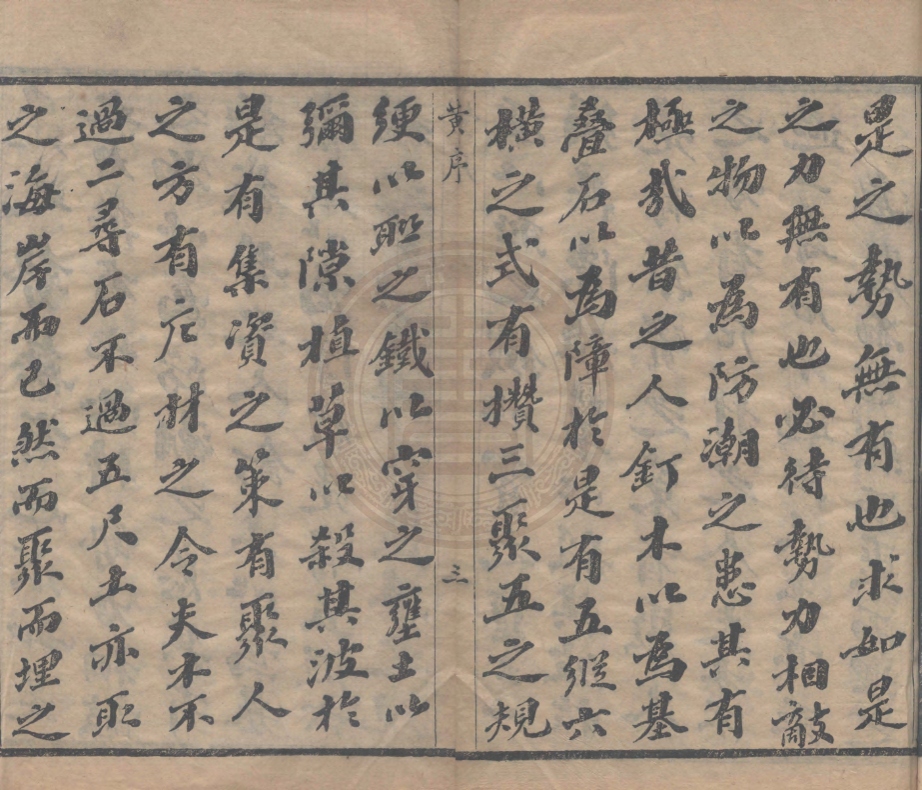 是之勢無有也求如是
之力無有也必待勢力相敵
之物以為防潮之患其有
極哉昔之人釘木以為基
疊石以為障於是有五縱六
橫之式有攢三聚五之規
黃序
三
綆以聯之鐵以穿之壅土以
彌其隙植草以殺其波於
是有集資之策有聚人
之方有庀材之令夫木不
過二尋石不過五尺土亦取
之海岸而已然而聚而埋之